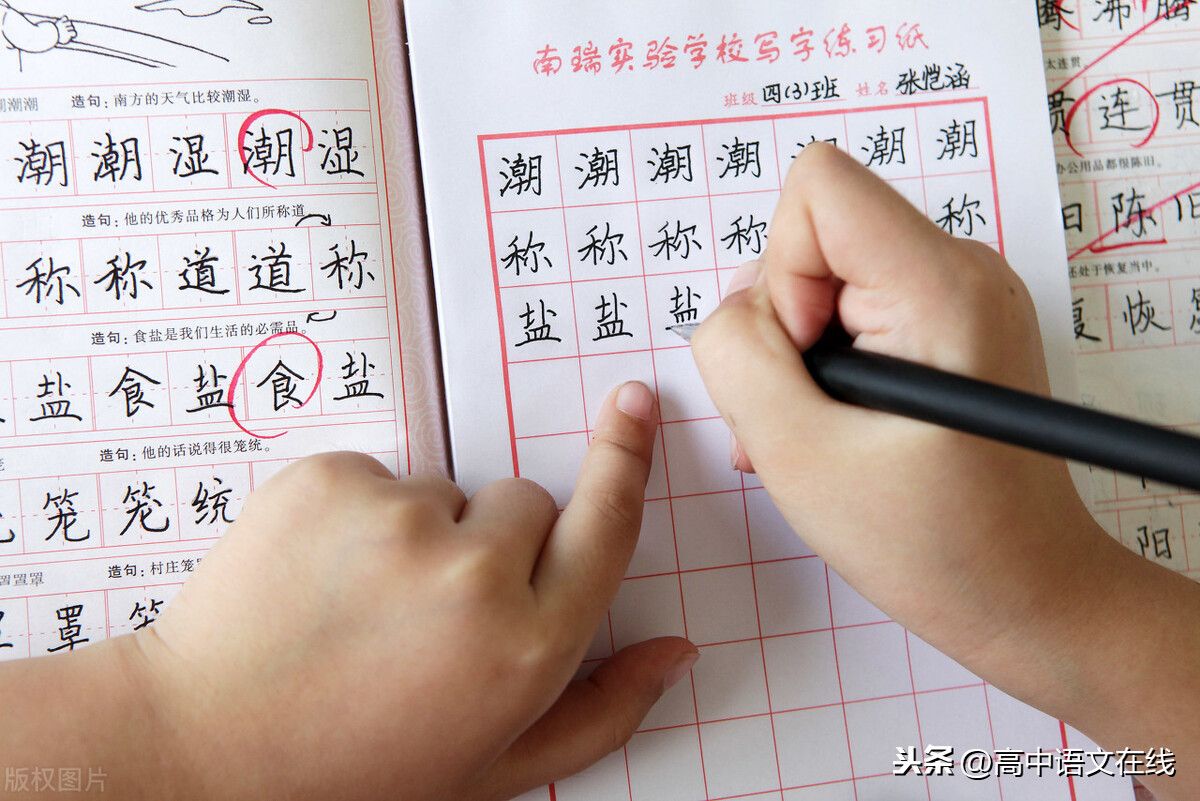 潮潮 造句：南方的天气比较潮湿。
潮 潮 湿 潮 湿
造句：他的优秀品格为人们所称道
称 称 道 道 称
造句：食盐是我们生活的必需品。
盐 食 盐 食 盐
造句：他的话说得很笼统。
笼 笼 统
罩罩罩 造句：村庄笼
罩
南瑞实验学校写字练习纸
班级 四(3)班 姓名 张恺涵
潮 潮 潮 潮 潮 潮 潮
称 称 称 称 称
盐 盐 盐
沸腾
太连贯。
贯 连 贯
办公用品都很陈旧。
旧 陈 旧
还处于恢复当中。
复 恢
阳
版权图片
头条 @高中语文在线